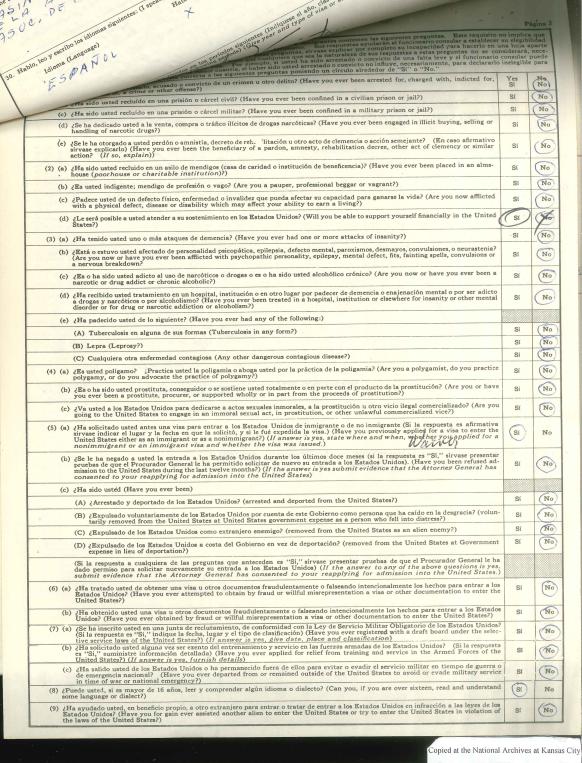 Página 3
30. Hablo, leo y escribo los idiomas siguientes: (I speak
Idioma (Language)
ESPAÑOL
X
Yes No
Si No
(b) ¿Ha sido usted recluido en una prisión o cárcel civil? (Have you ever been confined in a civilian prison or jail?) Si No
(c) ¿Ha sido usted recluido en una prisión o cárcel militar? (Have you ever been confined in a military prison or jail?) Si No
(d) ¿Se ha dedicado usted a la venta, compra o tráfico ilícitos de drogas narcóticas? (Have you ever been engaged in illicit buying, selling or Si No
handling of narcotic drugs?)
(e) ¿Se le ha otorgado a usted perdón o amnistía, decreto de reh. 'litación u otro acto de clemencia o acción semejante? (En caso afirmativo Si No
sírvase explicarlo) (Have you ever been the beneficiary of a pardon, amnesty, rehabilitation decree, other act of clemency or similar
action? (If so, explain))
(2) (a) ¿Ha sido usted recluido en un asilo de mendigos (casa de caridad o institución de beneficencia)? (Have you ever been placed in an alms- Si No
house (poorhouse or charitable institution)?)
(b) ¿Es usted indigente; mendigo de profesión o vago? (Are you a pauper, professional beggar or vagrant?) Si No
(c) ¿Padece usted de un defecto físico, enfermedad o invalidez que pueda afectar su capacidad para ganarse la vida? (Are you now afflicted Si No
with a physical defect, disease or disability which may affect your ability to earn a living?)
(d) ¿Le será posible a usted atender a su sostenimiento en los Estados Unidos? (Will you be able to support yourself financially in the United Si No
States?)
(3) (a) ¿Ha tenido usted uno o más ataques de demencia? (Have you ever had one or more attacks of insanity?) Si No
(b) ¿Está o estuvo usted afectado de personalidad psicopática, epilepsia, defecto mental, paroxismos, desmayos, convulsiones, o neurastenia? Si No
(Are you now or have you ever been afflicted with psychopathic personality, epilepsy, mental defect, fits, fainting spells, convulsions or
a nervous breakdown?
(c) ¿Es o ha sido usted adicto al uso de narcóticos o drogas o es o ha sido usted alcohólico crónico? (Are you now or have you ever been a Si No
narcotic or drug addict or chronic alcoholic?)
(d) ¿Ha recibido usted tratamiento en un hospital, institución o en otro lugar por padecer de demencia o enajenación mental o por ser adicto Si No
a drogas y narcóticos o por alcoholismo? (Have you ever been treated in a hospital, institution or elsewhere for insanity or other mental
disorder or for drug or narcotic addiction or alcoholism?)
(e) ¿Ha padecido usted de lo siguiente? (Have you ever had any of the following:)
(A) Tuberculosis en alguna de sus formas (Tuberculosis in any form?) Si No
(B) Lepra (Leprosy?) Si No
(C) Cualquiera otra enfermedad contagiosa (Any other dangerous contagious disease?) Si No
(4) (a) ¿Es usted polígamo? ¿Practica usted la poligamia o aboga usted por la práctica de la poligamia? (Are you a polygamist, do you practice Si No
polygamy, or do you advocate the practice of polygamy?)
(b) ¿Es o ha sido usted prostituta, conseguidor o se sostiene usted totalmente o en parte con el producto de la prostitución? (Are you or have Si No
you ever been a prostitute, procurer, or supported wholly or in part from the proceeds of prostitution?)
(c) ¿Va usted a los Estados Unidos para dedicarse a actos sexuales inmorales, a la prostitución u otro vicio ilegal comercializado? (Are you Si No
going to the United States to engage in an immoral sexual act, in prostitution, or other unlawful commercialized vice?)
(5) (a) ¿Ha solicitado usted antes una visa para entrar a los Estados Unidos de inmigrante o de no inmigrante (Si la respuesta es afirmativa Si No
sírvase indicar el lugar y la fecha en que la solicitó, y si le fué expedida la visa.) (Have you previously applied for a visa to enter the
United States either as an immigrant or as a nonimmigrant?) (If answer is yes, state where and when, whether you applied for a
nonimmigrant or an immigrant visa and whether the visa was issued.)
(b) ¿Se le ha negado a usted la entrada a los Estados Unidos durante los últimos doce meses (si la respuesta es "Si," sírvase presentar Si No
pruebas de que el Procurador General le ha permitido solicitar de nuevo su entrada a los Estados Unidos). (Have you been refused ad-
mission to the United States during the last twelve months?) (If the answer is yes submit evidence that the Attorney General has
consented to your reapplying for admission into the United States)
(c) ¿Ha sido usted (Have you ever been)
(A) ¿Arrestado y deportado de los Estados Unidos? (arrested and deported from the United States?) Si No
(B) ¿Expulsado voluntariamente de los Estados Unidos por cuenta de este Gobierno como persona que ha caído en la desgracia? (volun- Si No
tarily removed from the United States at United States government expense as a person who fell into distress?)
(C) ¿Expulsado de los Estados Unidos como extranjero enemigo? (removed from the United States as an alien enemy?) Si No
(D) ¿Expulsado de los Estados Unidos a costa del Gobierno en vez de deportación? (removed from the United States at Government Si No
expense in lieu of deportation?)
(Si la respuesta a cualquiera de las preguntas que anteceden es "Si," sírvase presentar pruebas de que el Procurador General le ha
dado permiso para solicitar nuevamente su entrada a los Estados Unidos) (If the answer to any of the above questions is yes,
submit evidence that the Attorney General has consented to your reapplying for admission into the United States.)
(6) (a) ¿Ha tratado usted de obtener una visa u otros documentos fraudulentamente o falseando intencionalmente los hechos para entrar a los Si No
Estados Unidos? (Have you ever attempted to obtain by fraud or willful misrepresentation a visa or other documentation to enter the
United States?)
(b) ¿Ha obtenido usted una visa u otros documentos fraudulentamente o falseando intencionalmente los hechos para entrar a los Estados Si No
Unidos? (Have you ever obtained by fraud or willful misrepresentation a visa or other documentation to enter the United States?)
(7) (a) ¿Se ha inscrito usted en una junta de reclutamiento, de conformidad con la Ley de Servicio Militar Obligatorio de los Estados Unidos? Si No
(Si la respuesta es "Si," indique la fecha, lugar y el tipo de clasificación) (Have you ever registered with a draft board under the selec-
tive service laws of the United States?) (If answer is yes, give date, place and classification)
(b) ¿Ha solicitado usted alguna vez ser exento del entrenamiento y servicio en las fuerzas armadas de los Estados Unidos? (Si la respuesta Si No
es "Si," suministre información detallada) (Have you ever applied for relief from training and service in the Armed Forces of the
United States?) (If answer is yes, furnish details)
(c) ¿Ha salido usted de los Estados Unidos o ha permanecido fuera de ellos para evitar o evadir el servicio militar en tiempo de guerra o Si No
de emergencia nacional? (Have you ever departed from or remained outside the United States to avoid or evade military service
in time of war or national emergency?)
(8) ¿Puede usted, si es mayor de 16 años, leer y comprender algún idioma o dialecto? (Can you, if you are over sixteen, read and understand Si No
some language or dialect?)
(9) ¿Ha ayudado usted, en beneficio propio, a otro extranjero para entrar o tratar de entrar a los Estados Unidos en infracción a las leyes de los Si No
Estados Unidos? (Have you for gain ever assisted another alien to enter the United States or try to enter the United States in violation of
the laws of the United States?)
Copied at the National Archives at Kansas City